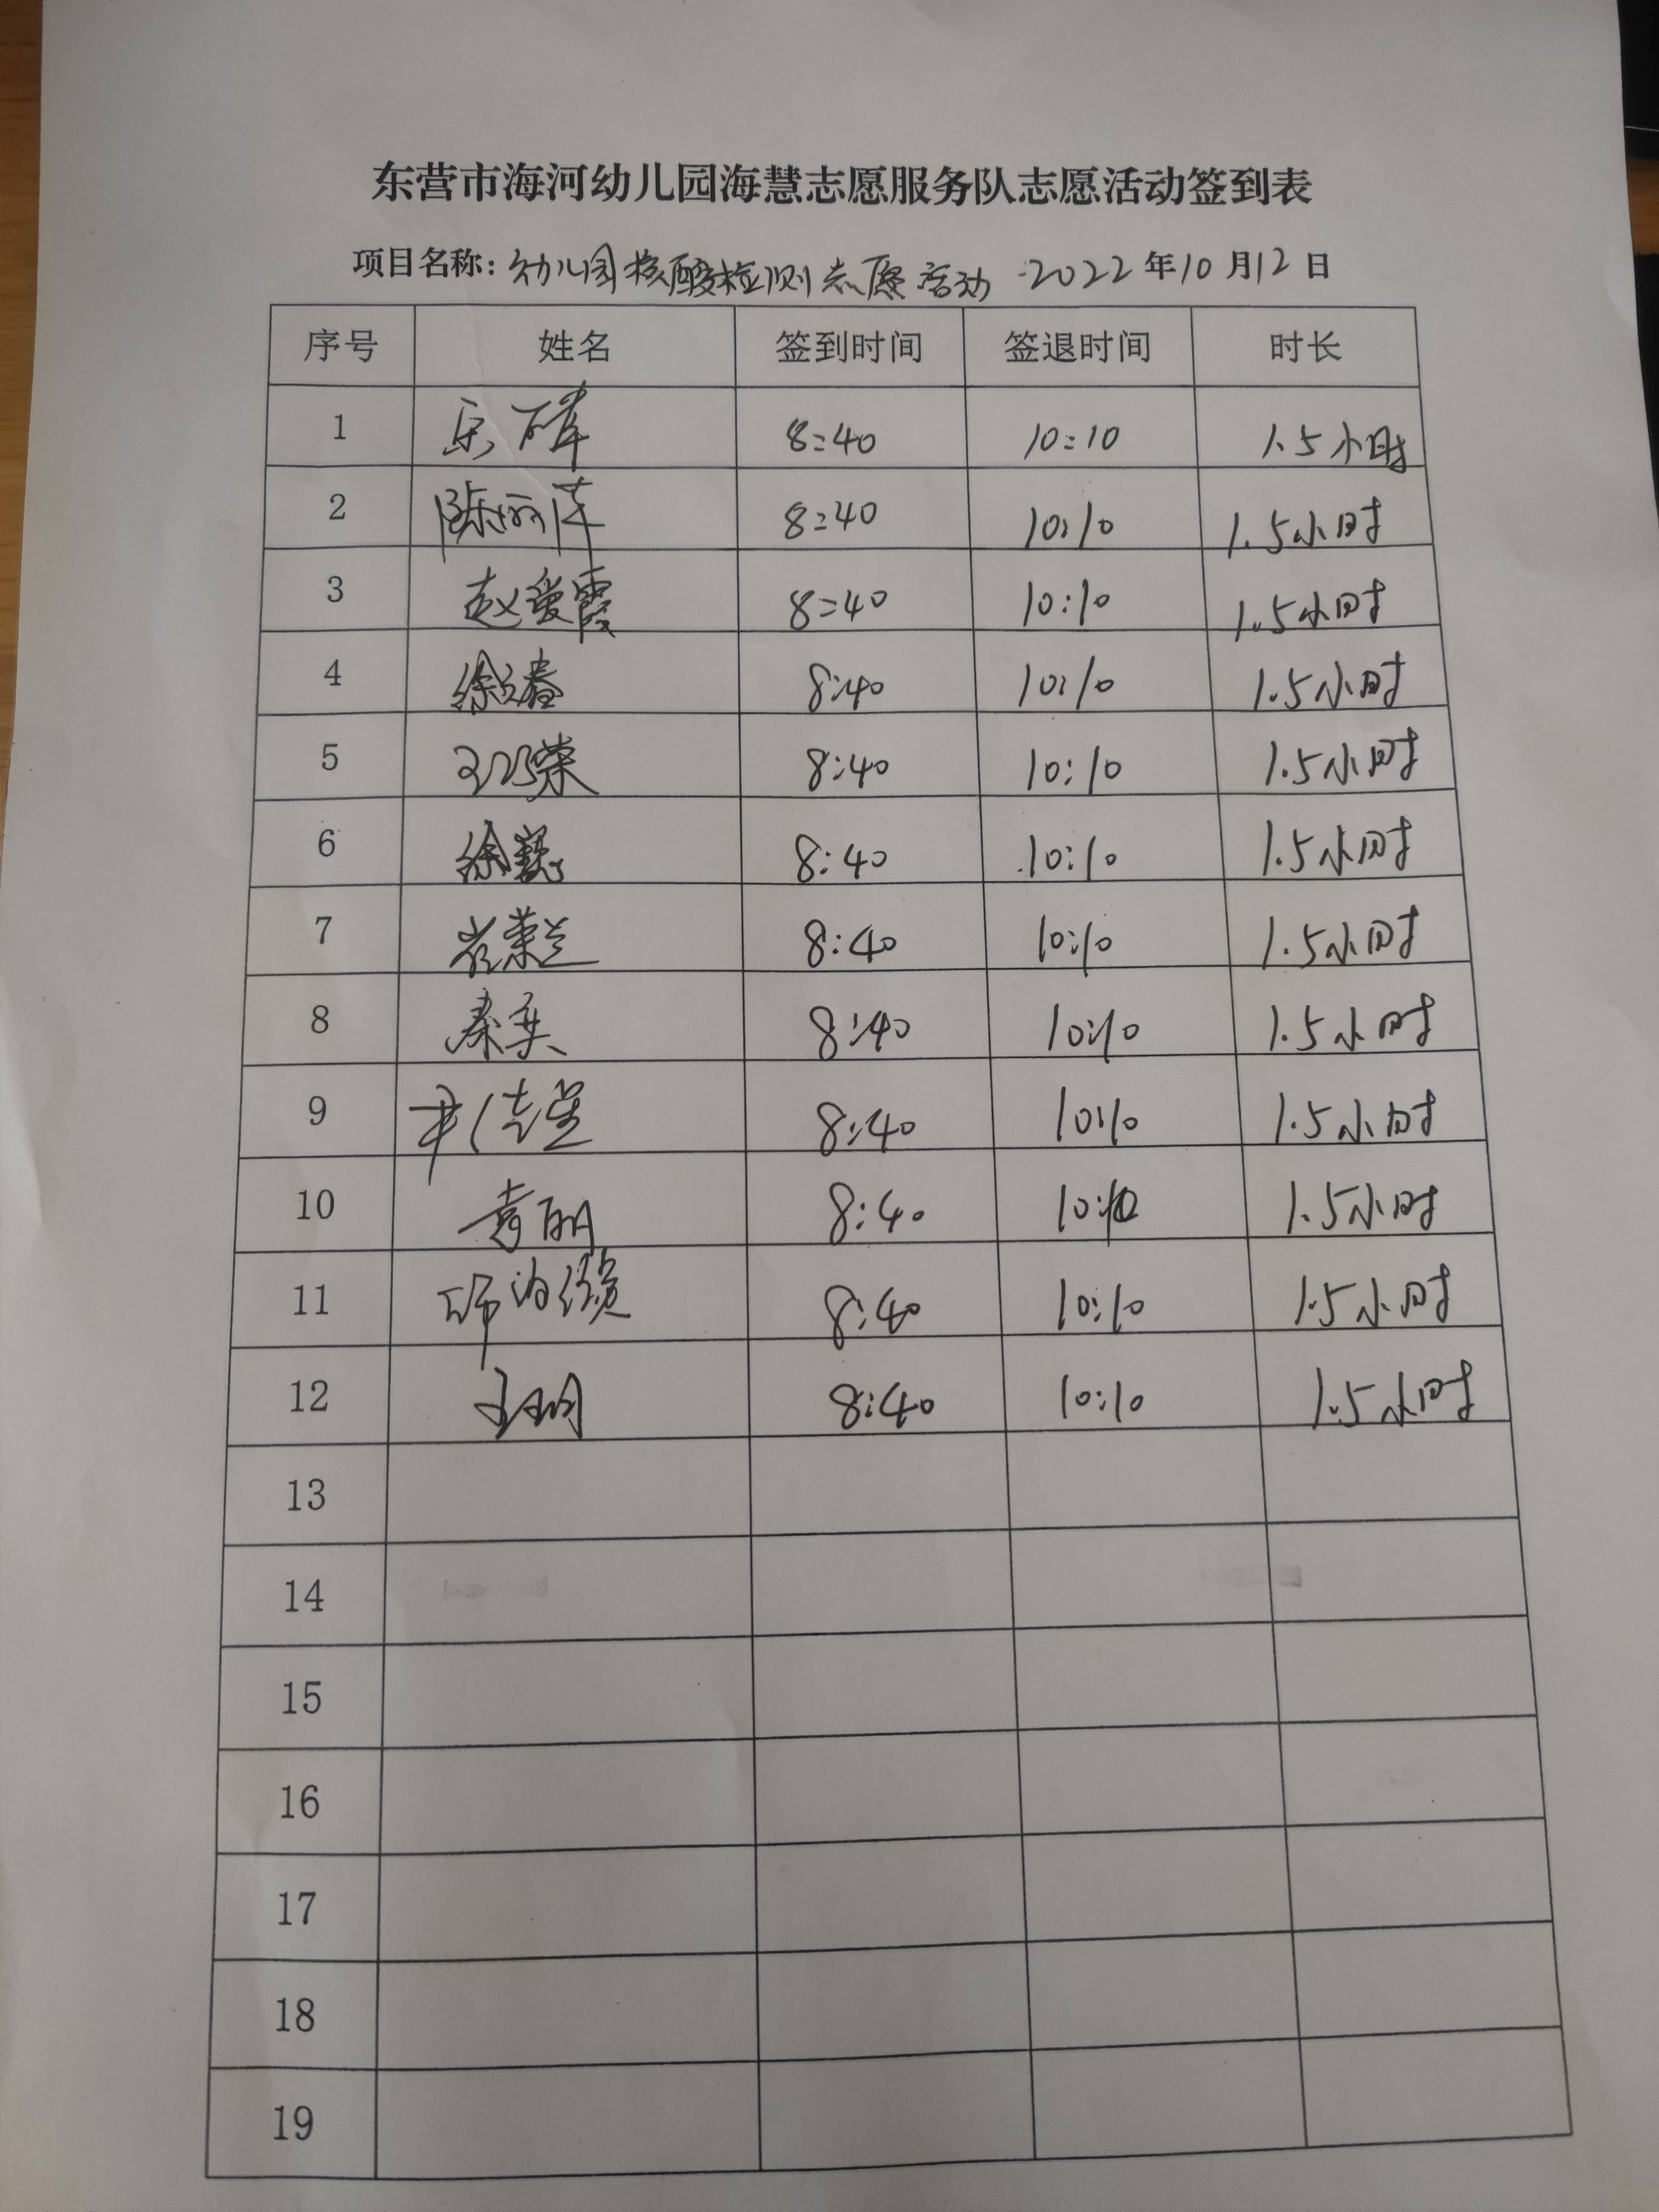 东营市海河幼儿园海慧志愿服务队志愿活动签到表
项目名称：幼儿园核酸检测志愿活动 2022年10月12日
序号 姓名 签到时间 签退时间 时长
1 8:40 10:10 1.5小时
2 陈丽萍 8:40 10:10 1.5小时
3 赵爱霞 8:40 10:10 1.5小时
4 8:40 10:10 1.5小时
5 8:40 10:10 1.5小时
6 徐巍 8:40 10:10 1.5小时
7 崔荣兰 8:40 10:10 1.5小时
8 秦英 8:40 10:10 1.5小时
9 8:40 10:10 1.5小时
10 袁丽 8:40 10:10 1.5小时
11 8:40 10:10 1.5小时
12 8:40 10:10 1.5小时
13
14
15
16
17
18
19